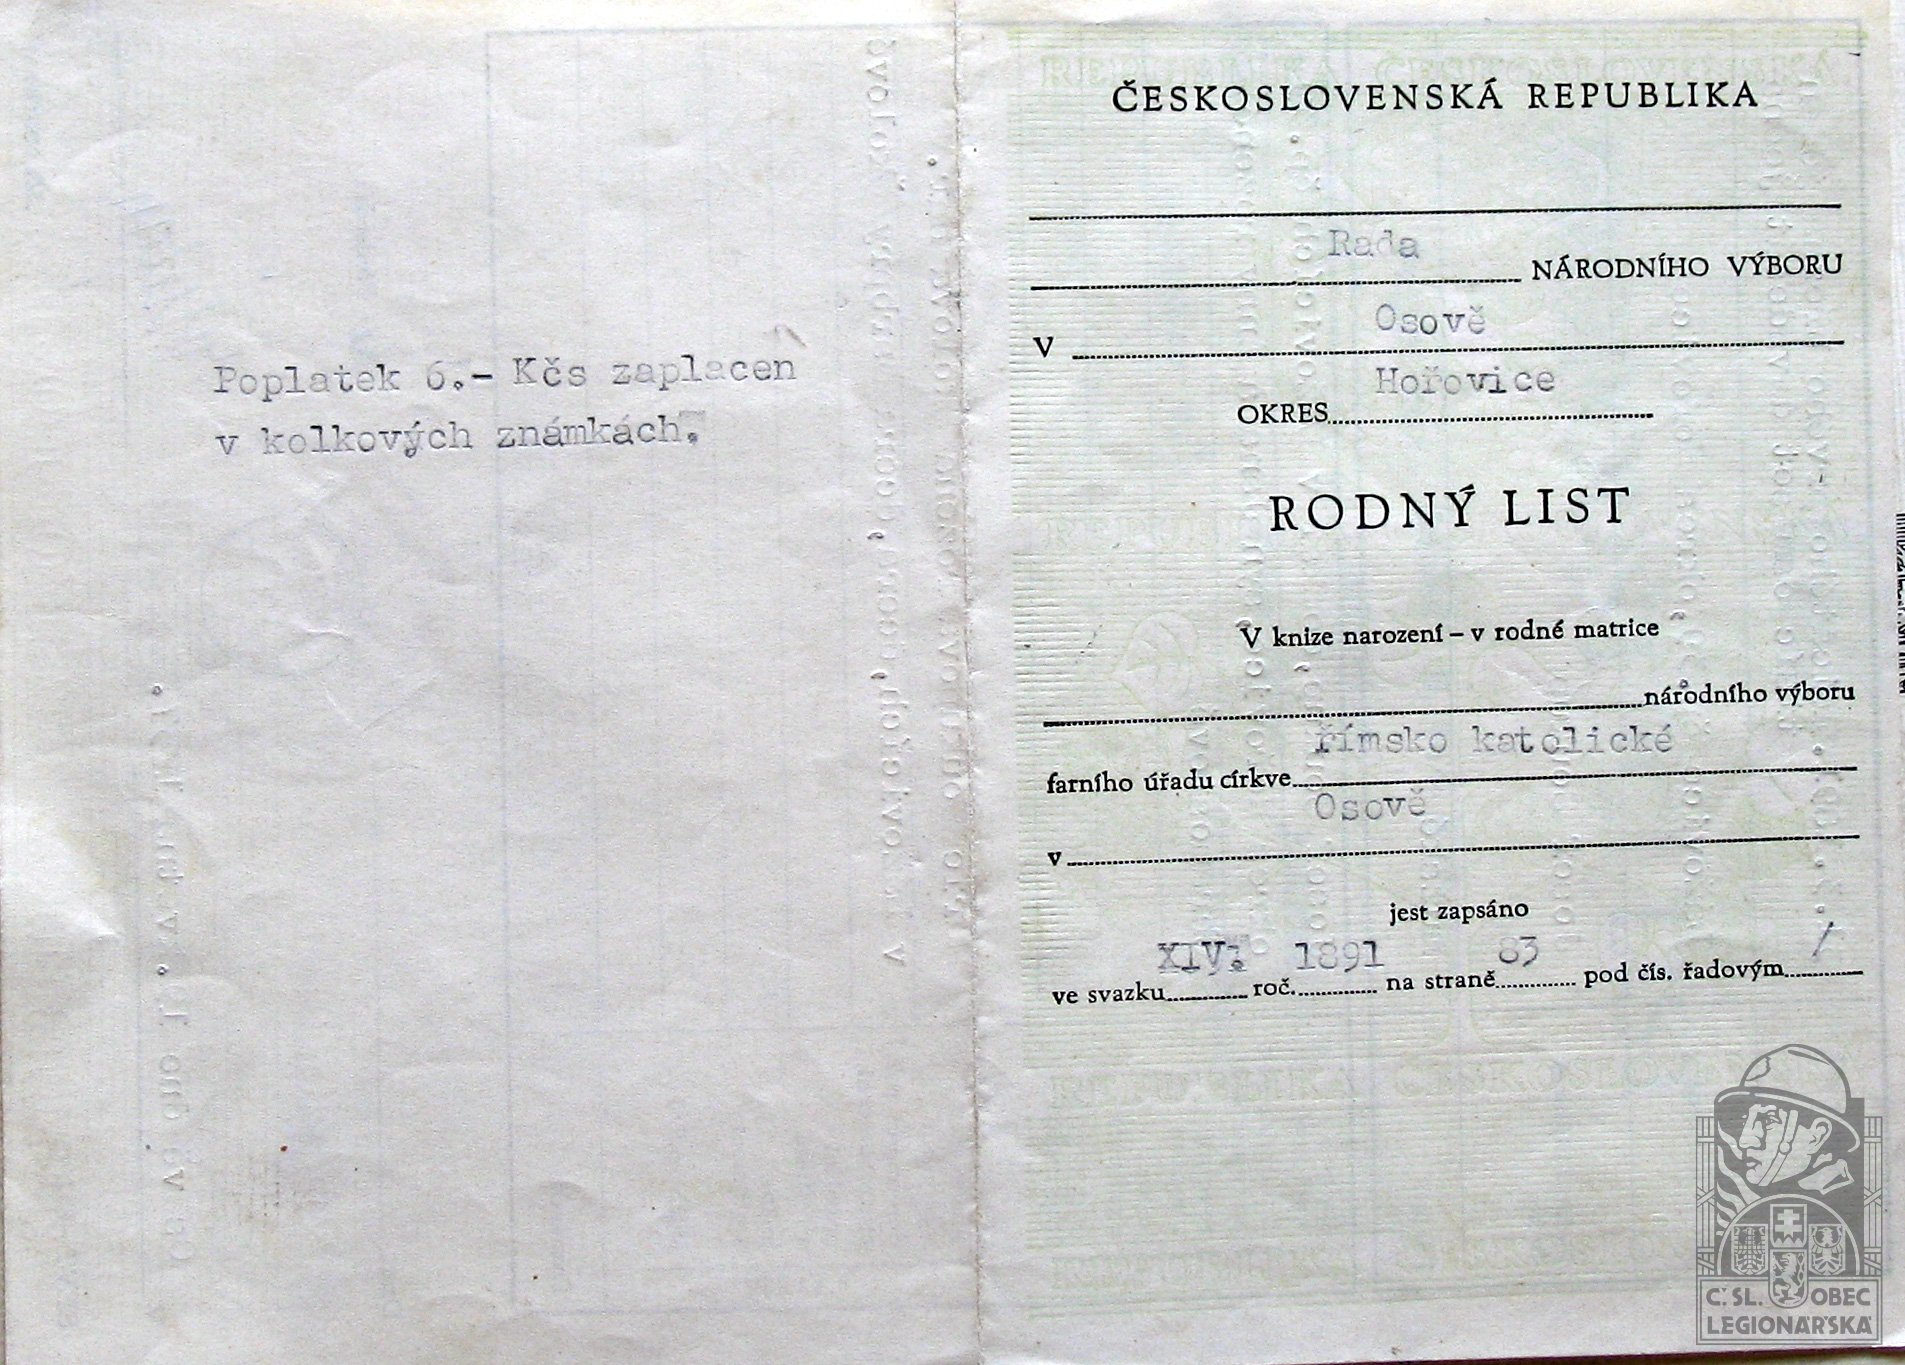 Poplatek 6.- Kčs zaplacen
v kolkových známkách.
ČESKOSLOVENSKÁ REPUBLIKA
Rada
NÁRODNÍHO VÝBORU
Osově
V
Hořovice
OKRES
RODNÝ LIST
V knize narození – v rodné matrice
národního výboru
římsko katolické
farního úřadu církve
Osově
v
jest zapsáno
XIV. 1891 83 /
ve svazku roč. na straně pod čís. řadovým
Č. SL. OBEC
LEGIONÁŘSKÁ